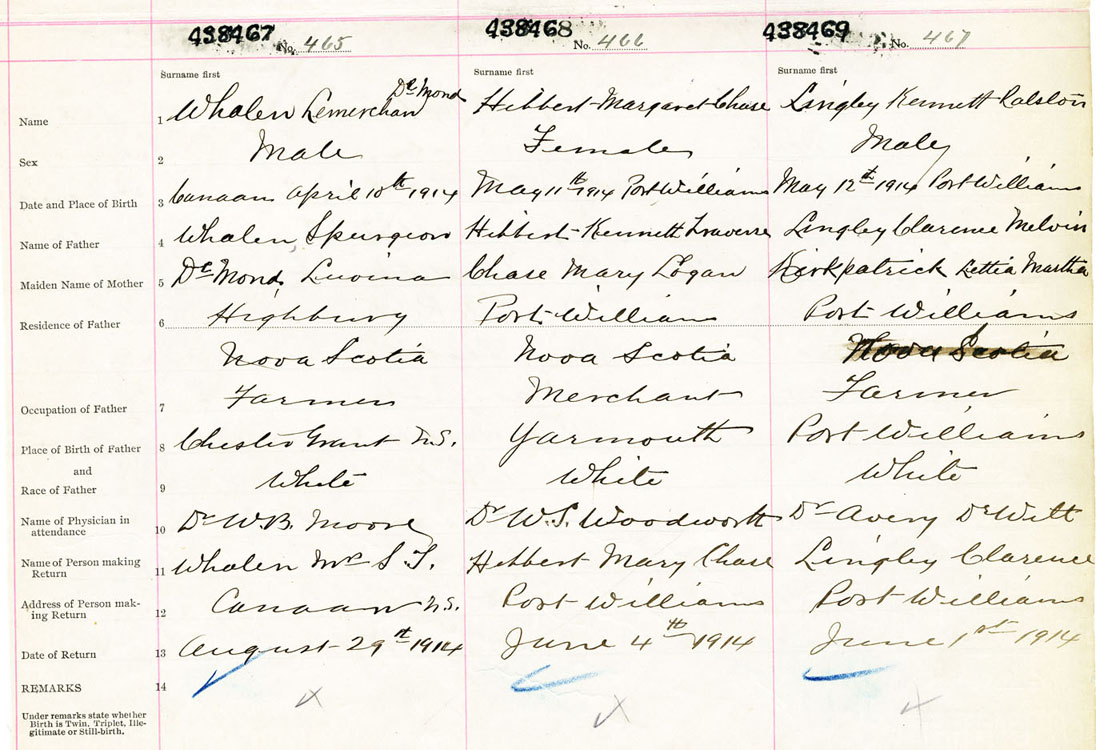 438467 438468 438469
No. 465 No. 466 No. 467
Surname first Surname first Surname first
De Mond
Name 1 Whalen Lemerchan Hibbert Margaret Chase Lingley Kennett Ralston
Sex 2 Male Female Male
Date and Place of Birth 3 Canaan April 10th 1914 May 11th 1914 Port Williams May 12th 1914 Port Williams
Name of Father 4 Whalen, Spurgeon Hibbert Kennett Traverse Lingley Clarence Melvin
Maiden Name of Mother 5 De Mond, Luvina Chase Mary Logan Kirkpatrick Lettia Martha
Residence of Father 6 Highbury Port Williams Port Williams
Nova Scotia Nova Scotia Nova Scotia
Occupation of Father 7 Farmer Merchant Farmer
Place of Birth of Father 8 Chester Grant N.S. Yarmouth Port Williams
and
Race of Father 9 White White White
Name of Physician in
attendance 10 Dr W.B. Moore Dr W.S. Woodworth Dr Avery DeWitt
Name of Person making
Return 11 Whalen Mrs S. T. Hibbert Mary Chase Lingley Clarence
Address of Person mak-
ing Return 12 Canaan N.S. Port Williams Port Williams
Date of Return 13 August 29th 1914 June 4th 1914 June 1st 1914
REMARKS 14
Under remarks state whether
Birth is Twin, Triplet, Ille-
gitimate or Still-birth.